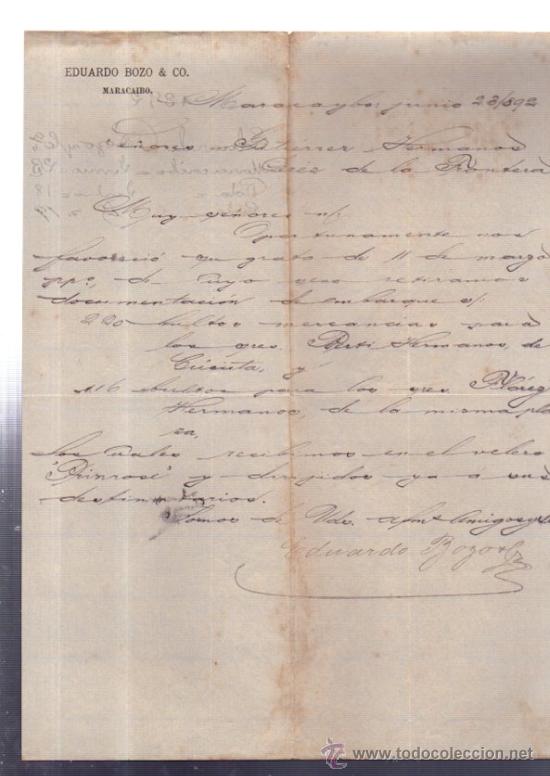 EDUARDO BOZO & CO.
MARACAIBO.
Maracaybo, junio 23/892
Señores Gutiérrez Hermanos
Jeréz de la Frontera
Muy señores n/
Oportunamente nos
favoreció su grato de 11 de marzo
ppº, de cuyo seno retiramos
documentación de embarque s/.
220 bultos mercancías para
los sres. Berti Hermanos, de
Cúcuta, y
116 bultos para los sres.
Hermanos, de la misma pla
za,
los cuales recibimos en el velero
"Primrose" y dirijidos ya á sus
destinatarios.
Somos de Uds. afmos amigos y
Eduardo Bozo & Ca
todocoleccion
www.todocoleccion.net